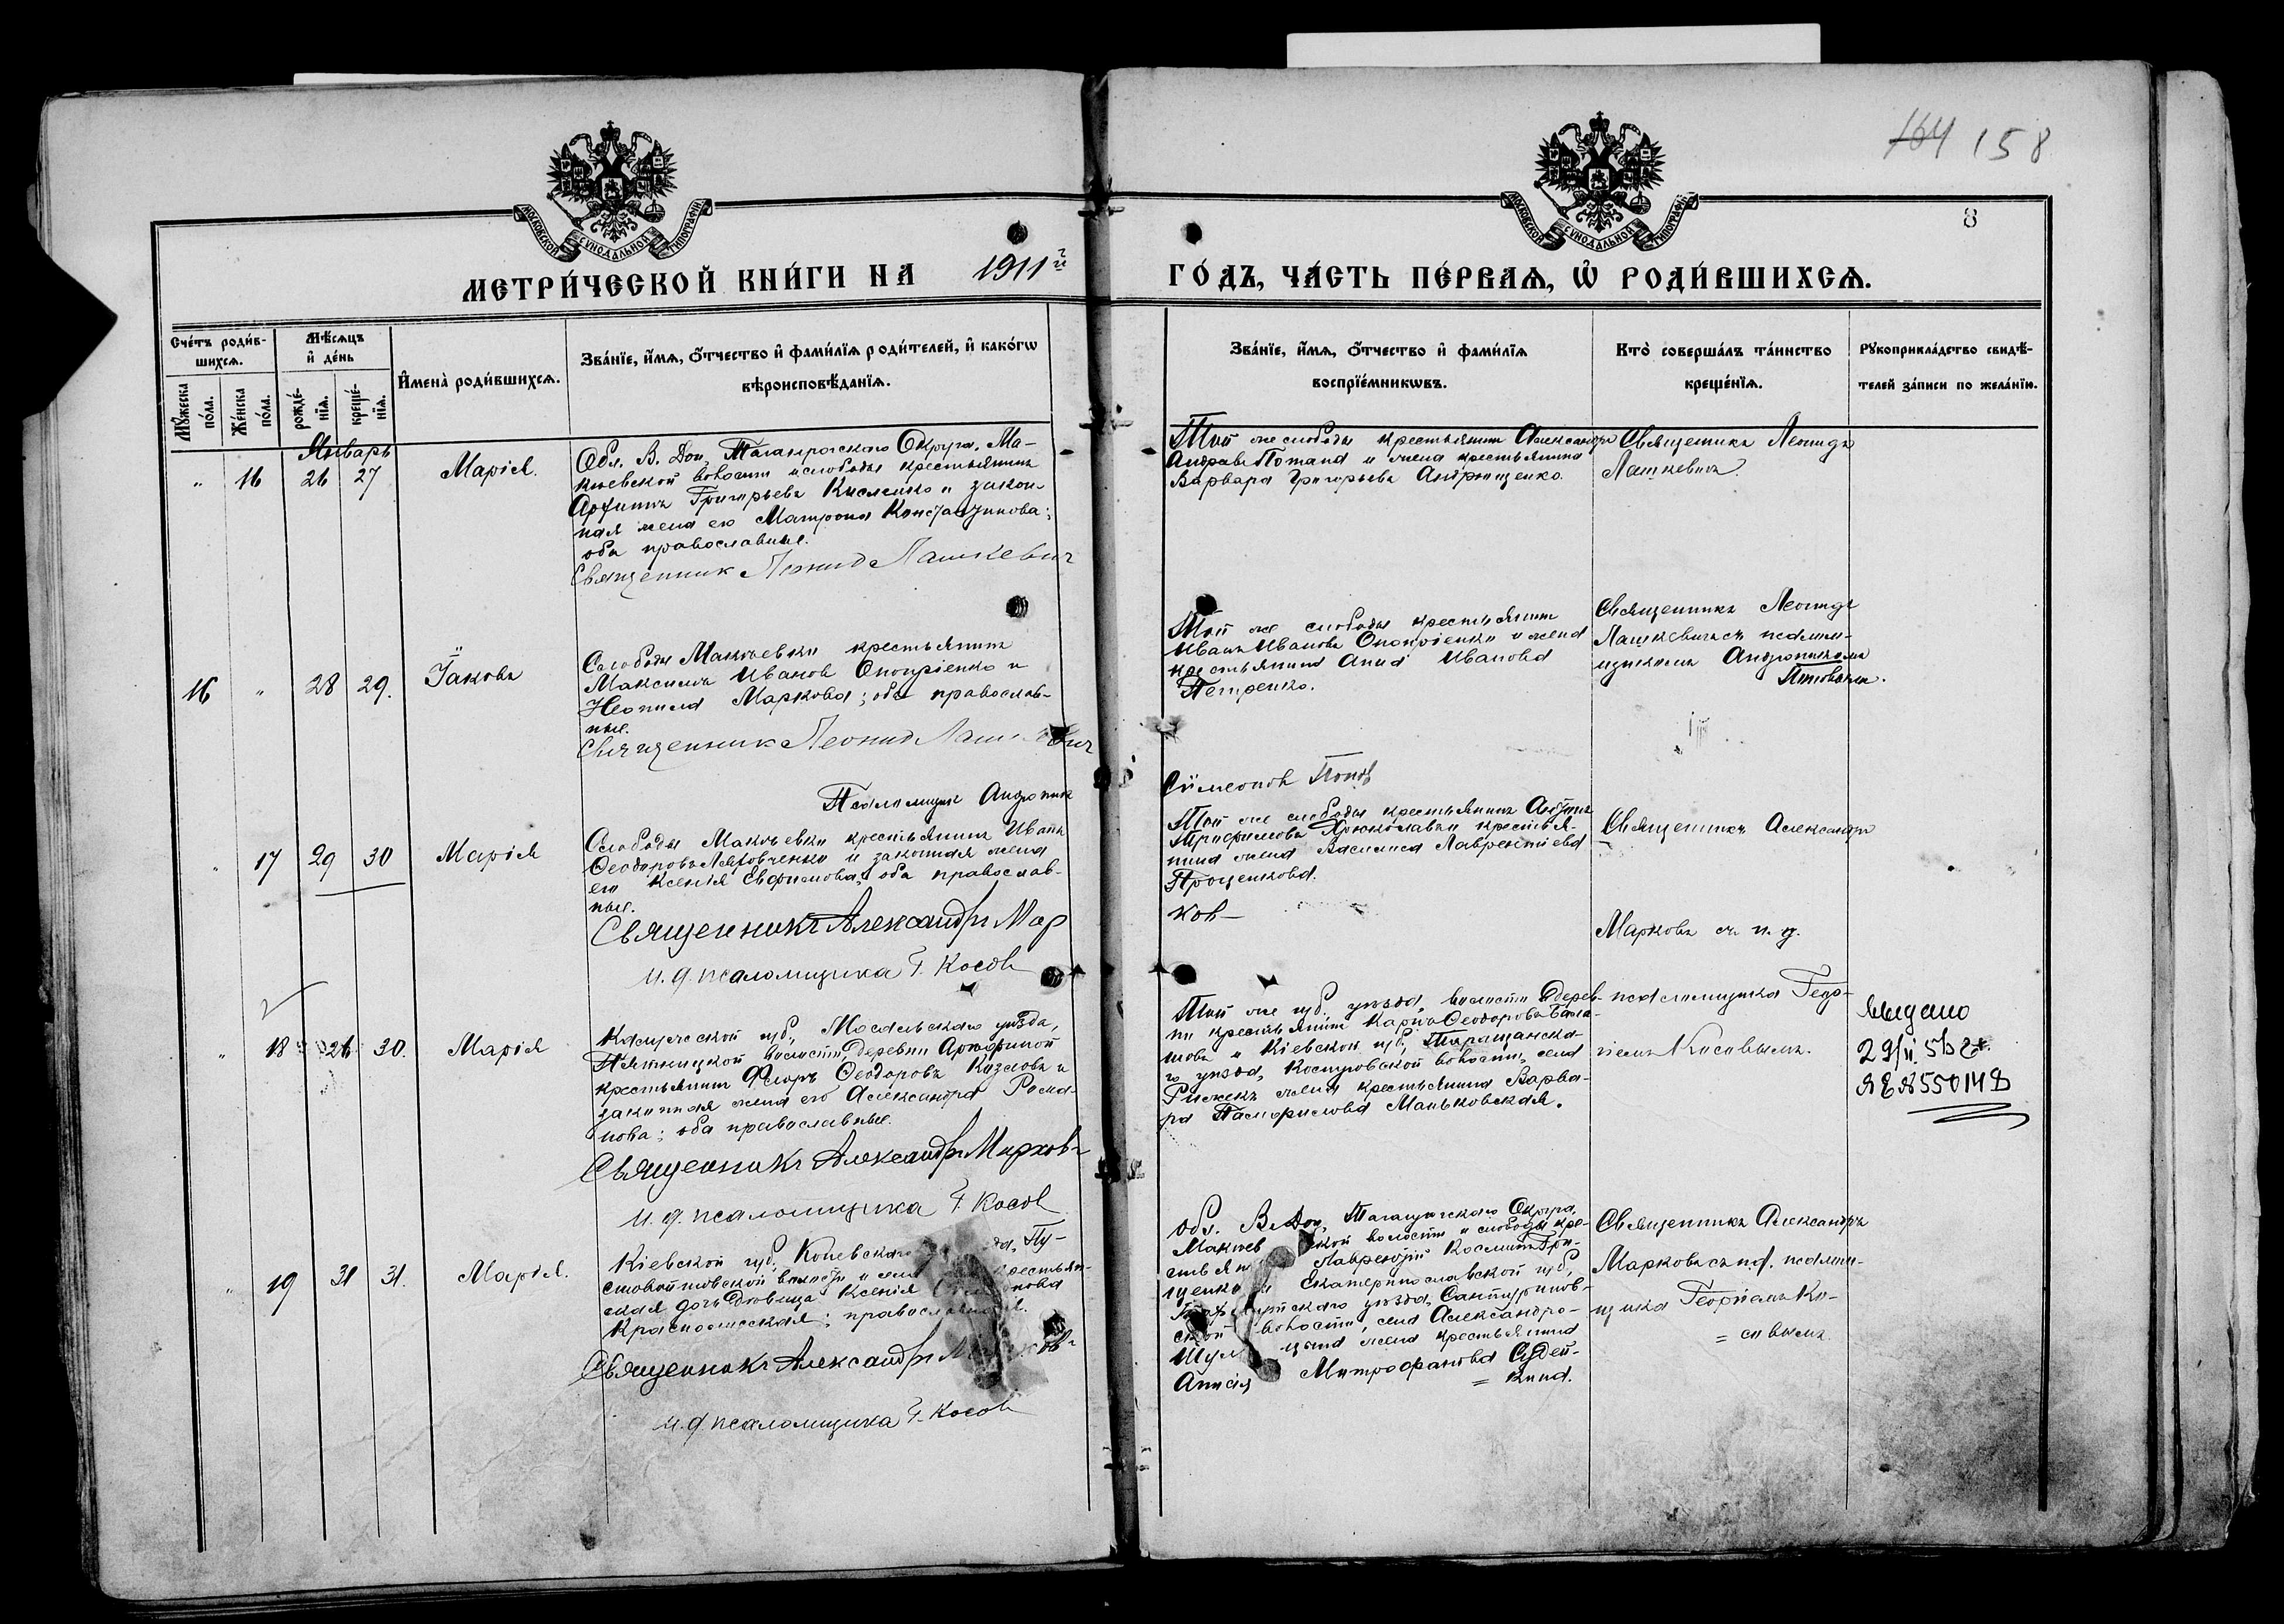 164 158
МОСКОВСКОЙ СѴНОДАЛЬНОЙ ТИПОГРАФІИ
МОСКОВСКОЙ СѴНОДАЛЬНОЙ ТИПОГРАФІИ
8
МЕТРИ́ЧЕСКОЙ КНИ́ГИ НА 1911й ГО́ДЪ, ЧА́СТЬ ПЕ́РВАѦ, Ѡ҆ РОДИ́ВШИХСѦ.
Сче́тъ роди́в-
шихсѧ.
Мꙋ́жеска по́ла.
Же́нска по́ла.
Мѣ́сѧцъ
и҆ де́нь
рожде́-
нїѧ.
креще́-
нїѧ.
И҆мена̀ роди́вшихсѧ.
Зва́нїе, и҆́мѧ, ѻ҆́тчество и҆ фами́лїѧ роди́телей, и҆ како́гѡ
вѣроисповѣ́данїѧ.
Зва́нїе, и҆́мѧ, ѻ҆́тчество и҆ фами́лїѧ
воспрїе́мникѡвъ.
Кто̀ соверша́лъ та́инство
креще́нїѧ.
Рꙋкоприкла́дство свидѣ́-
телей за́писи по жела́нїю.
Январь
" 16 26 27 Марія.
Обл. В. Дон, Таганрогскаго Округа, Ма-
кѣевской волости и слободы крестьянинъ
Григорьевъ Кисленко и закон-
ная жена его Матрона Константинова;
оба православные.
Священник Леонид Лашкевич
Той же слободы крестьянинъ Александръ
и жена крестьянина
Варвара Григорьева Андрющенко.
Священникъ Леонидъ
Лашкевичъ.
16 " 28 29. Іаковъ
Слободы Макѣевки крестьянинъ
Максимъ Иванов Онопріенко и
Неонила Маркова; оба православ-
ные.
Священник Леонид Лашкевич
Псаломщик Андроник
Той же слободы крестьянинъ
Иванъ Ивановъ Онопріенко и жена
крестьянина Анна Иванова
Петренко.
Сѵмеонов Попов
Священникъ Леонидъ
Лашкевичъ съ псалом-
щикомъ Андроникомъ
Поповымъ.
" 17 29 30 Марія
Слободы Макѣевки крестьянинъ Иванъ
Ѳеодоровъ и законная жена
его Ксенія Евфимова; оба православ-
ные.
Священникъ Александръ Мар
и. д. псаломщика Г. Косов
Той же слободы крестьянинъ
Трифимовъ и крестья-
нина жена Василиса Лаврентіева
Проценкова.
ков
Священникъ Александръ
Марковъ съ и. д.
" 18 26 30. Марія
Калужской губ., Мосальскаго уѣзда,
Пятницкой волости, деревни
крестьянинъ Флоръ Ѳеодоровъ Козловъ и
законная жена его Александра Рома-
нова; оба православные.
Священникъ Александръ Марковъ
и. д. псаломщика Г. Косов
Той же губ. уѣзда, волости и дерев-
ни крестьянинъ Карпъ Ѳеодоровъ
и Кіевской губ., Таращанска-
го уѣзда, волости, села
жена крестьянина Варва-
ра Памфилова Маньковская.
псаломщика Геор-
гіемъ Косовымъ.
Выдано
29/II. 51г.
ЯЕ №550148
" 19 31 31. Марія.
Кіевской губ., Каневскаго Пу-
волости и села крестьян-
ская дочь дѣвица Ксенія
православная.
Священникъ Александръ Марковъ
и. д. псаломщика Г. Косов
Обл. В. Дон, Таганрогскаго Округа,
Макѣевской волости и слободы кре-
стьянинъ Лаврентій Косминъ Гри-
щенко и Екатеринославской губ.,
уѣзда,
ской волости, села Александро-
жена крестьянина
Анисія Митрофанова Судей-
= кина.
Священникъ Александръ
Марковъ съ и. д. псалом-
щика Георгіемъ Ко-
= совымъ.